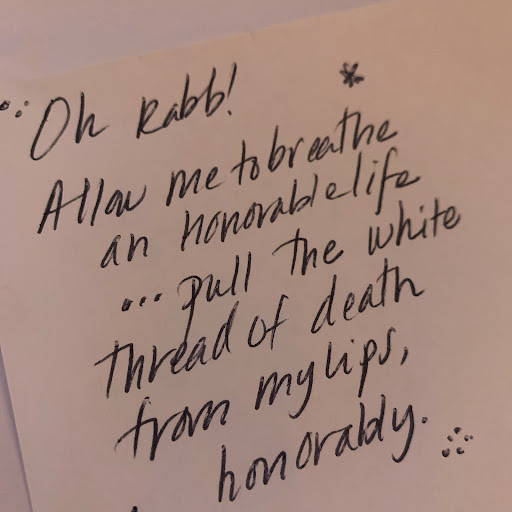 Oh Rabb!
Allow me to breathe
an honorable life
... pull the white
thread of death
from my lips,
honorably.